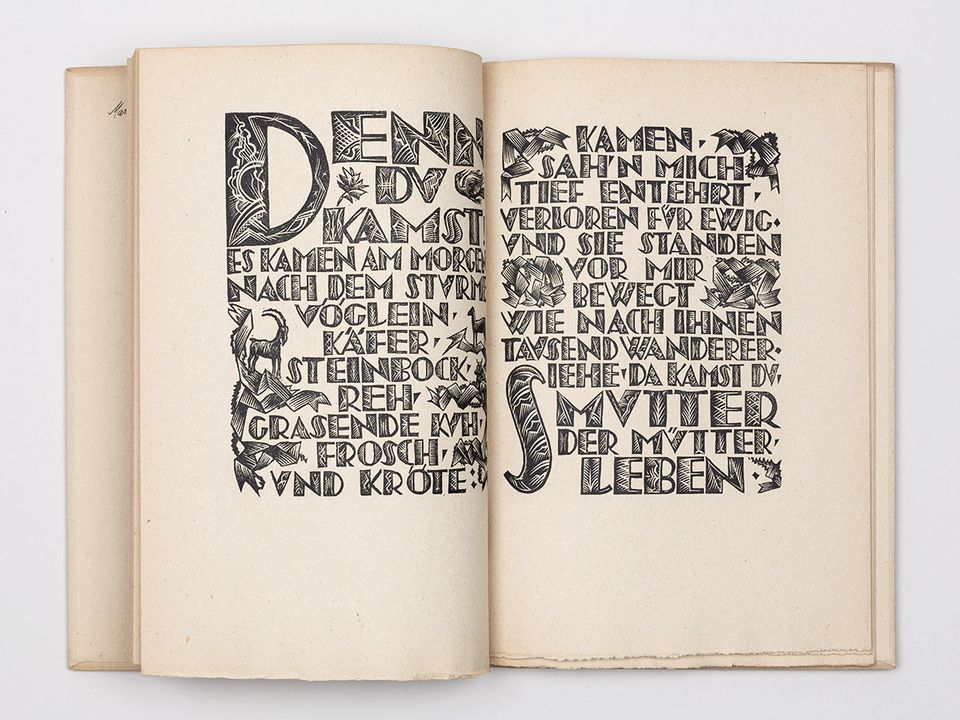 Mar
DENN
DV
KAMST:
ES KAMEN AM MORGEN
NACH DEM STVRME
VÖGLEIN·
KÄFER·
STEINBOCK·
REH·
GRASENDE KVH·
FROSCH·
VND KRÖTE:
KAMEN·
SAH'N MICH
TIEF ENTEHRT·
VERLOREN FVR EWIG·
VND SIE STANDEN
VOR MIR
BEWEGT
WIE NACH IHNEN
TAVSEND WANDERER·
SIEHE·DA KAMST DV·
MVTTER
DER MVTTER·
LEBEN·